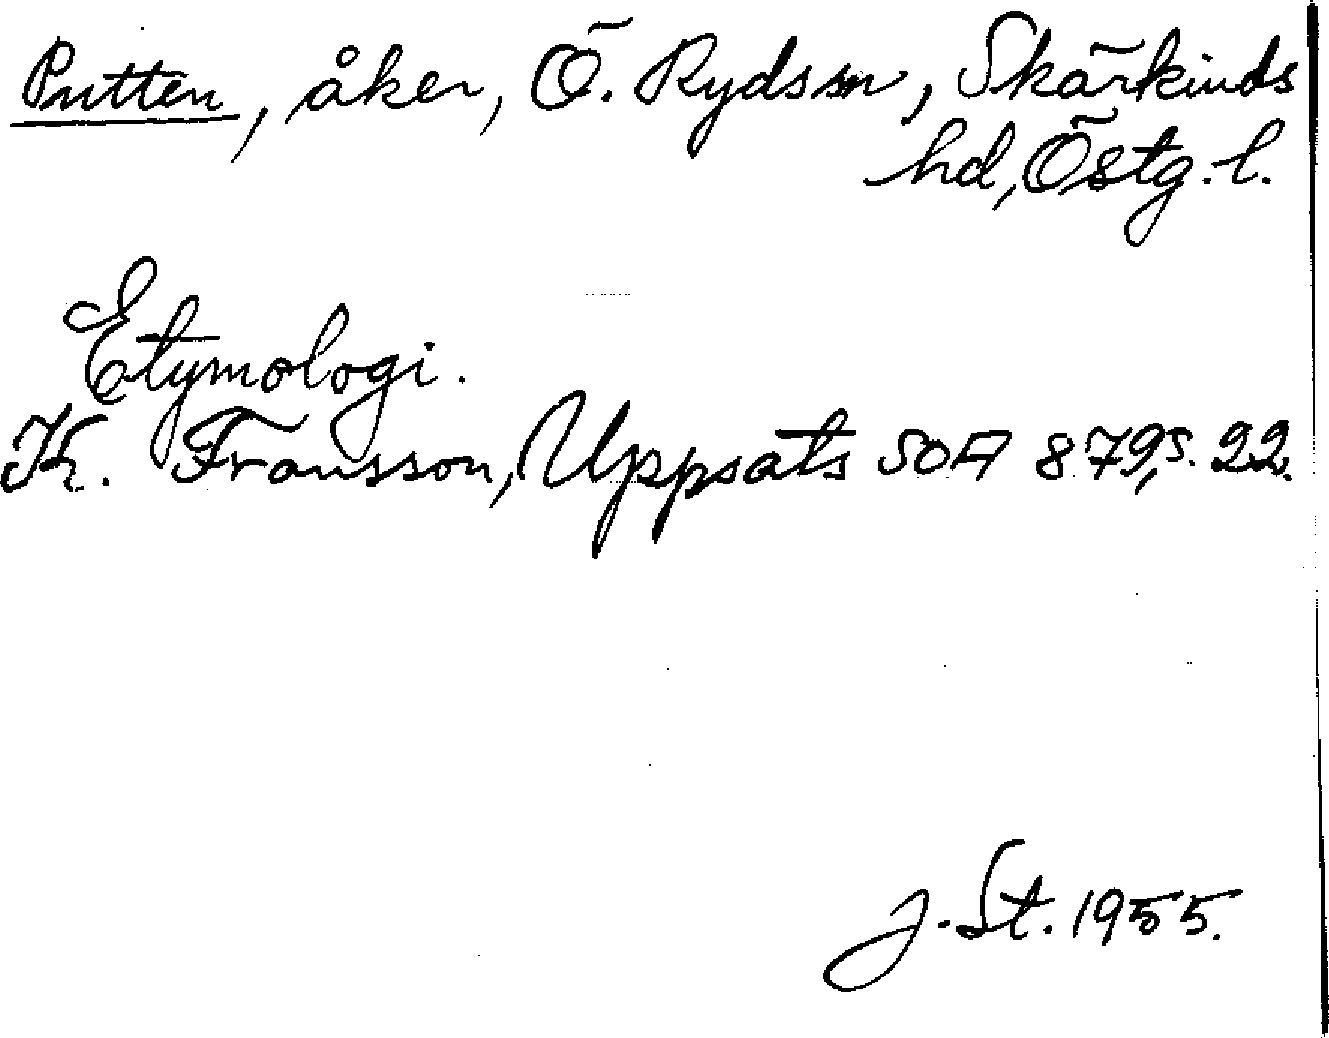 Putten, åker, Ö. Rydsm, Skärkinds
hd, Östg. l.
Etymologi.
K. Fransson, Uppsats SOA 879, s. 22.
J. St. 1955.